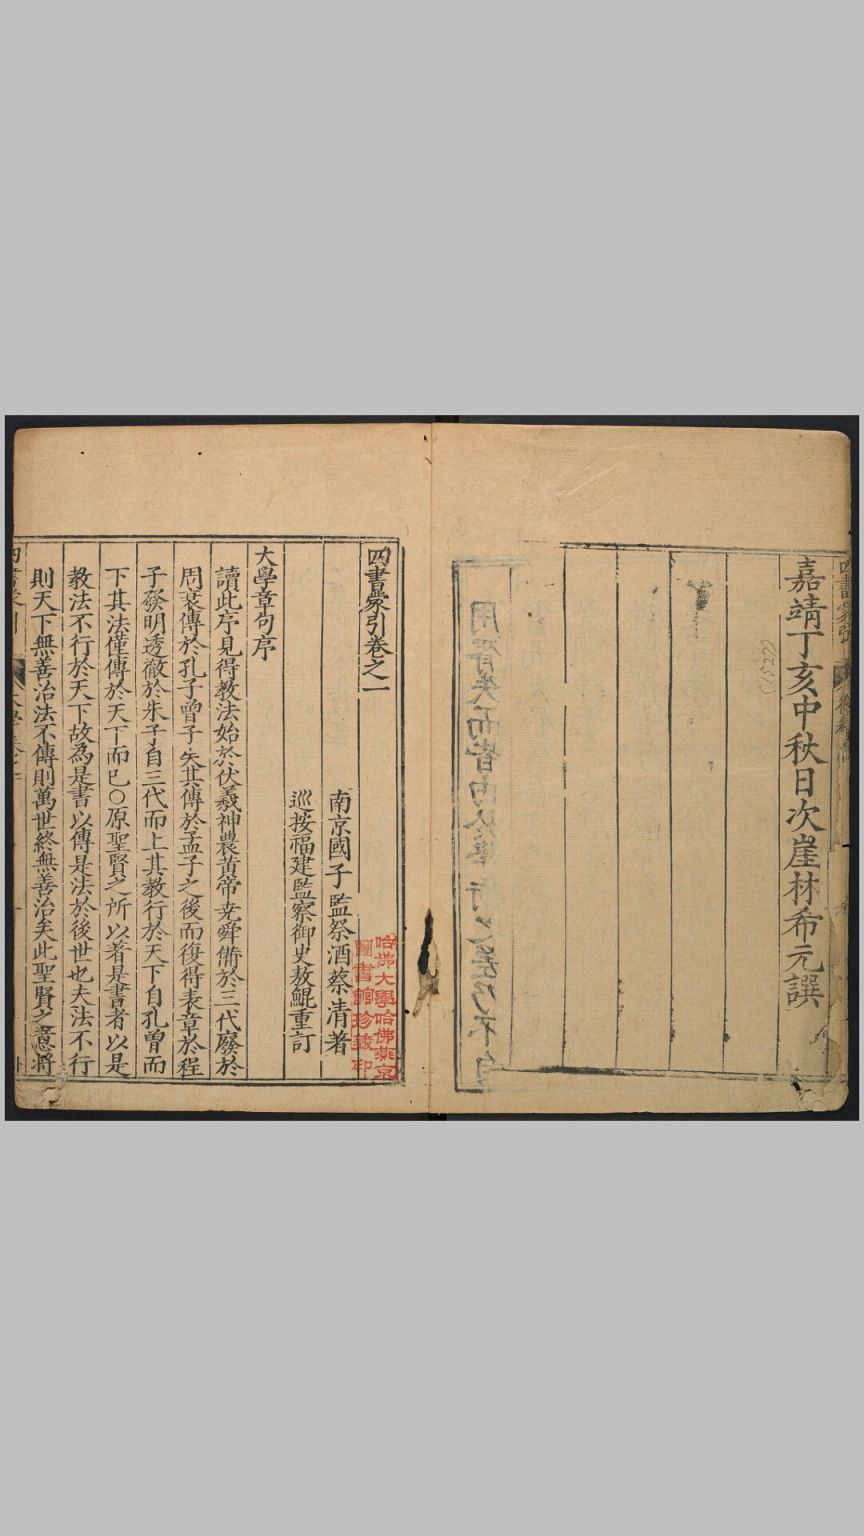 嘉靖丁亥中秋日次崖林希元譔
(1527)
四書蒙引卷之一
南京國子監祭酒蔡清著
巡按福建監察御史敖鯤重訂
哈佛大學哈佛燕京
圖書館珍藏印
大學章句序
讀此序見得教法始於伏羲神農黃帝尭舜備於三代廢於
周衰傳於孔子曾子失其傳於孟子之後而復得表章於程
子發明透徹於朱子自三代而上其教行於天下自孔曾而
下其法僅傳於天下而已〇原聖賢之所以著是書者以是
教法不行於天下故為是書以傳是法於後世也夫法不行
則天下無善治法不傳則萬世終無善治矣此聖賢之意將